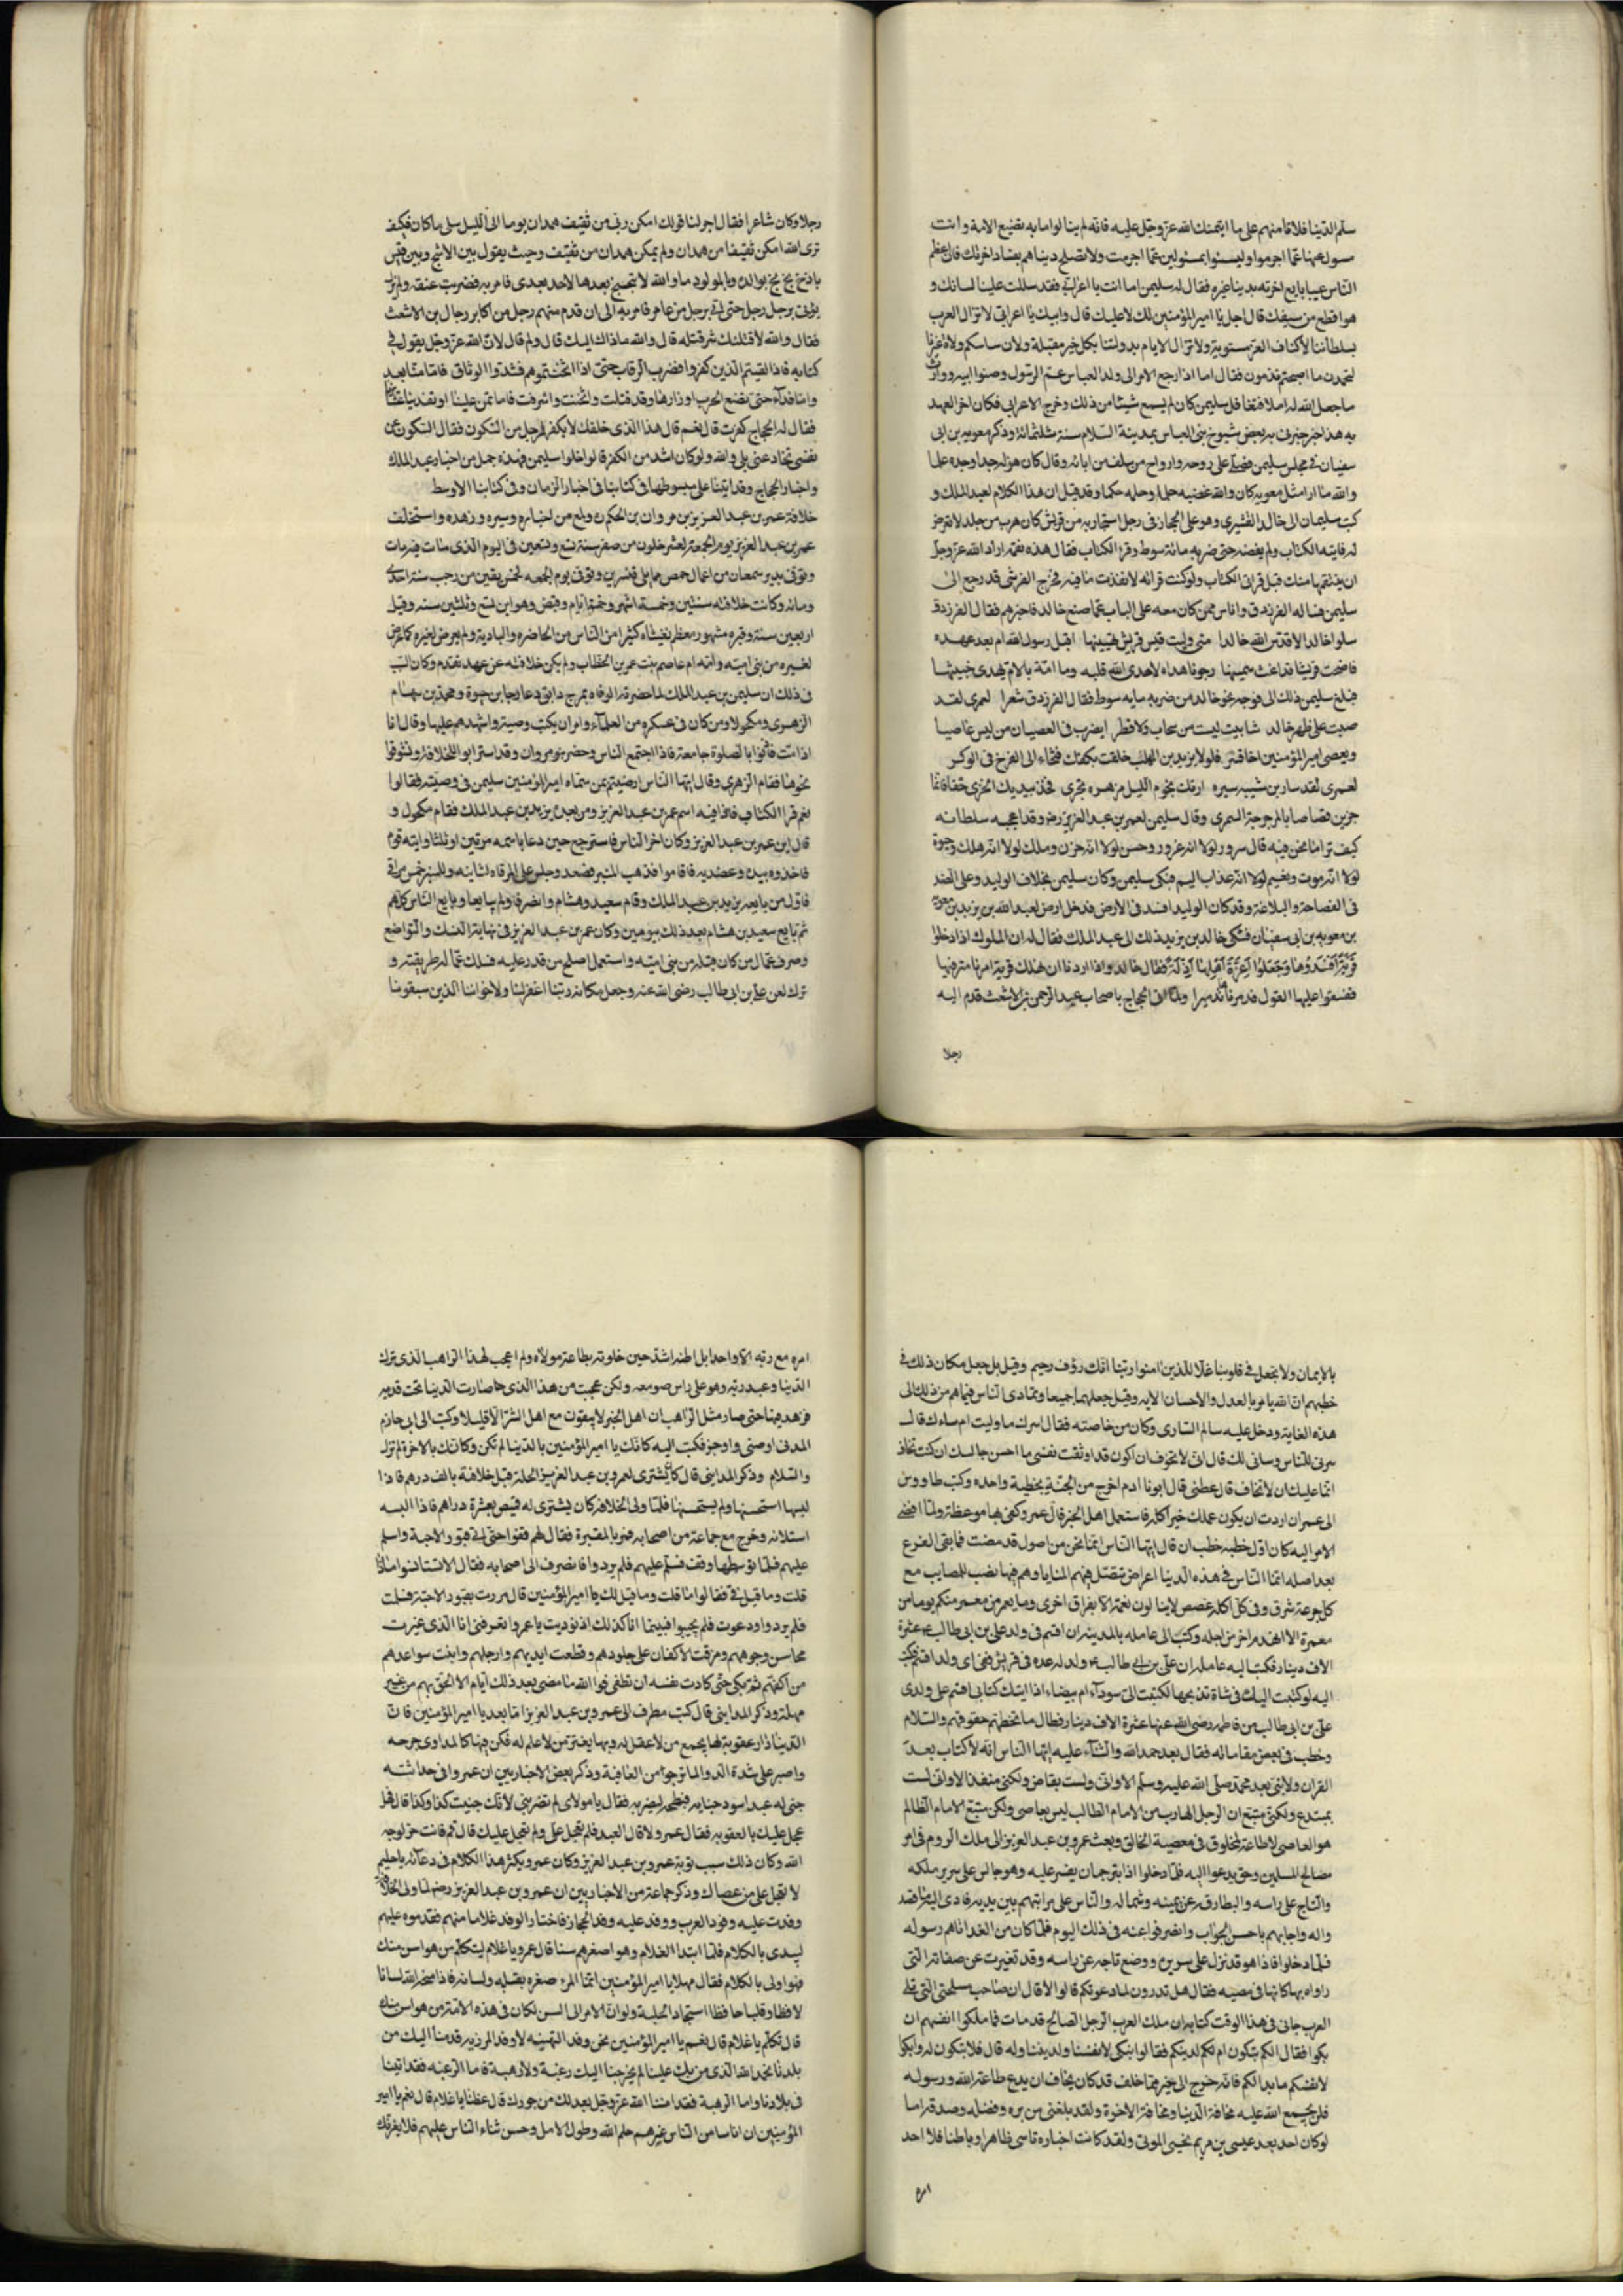 سلم الدنيا فلا تامنهم على ما ايتمنك الله عز وجل عليه فانهم لم ينالوا امانة تضيع الامة وانت
مسول عنها عما اجرموا وليسوا بمسئولين عما اجرمت ولا تصلح دنياهم بفساد اخرتك فان اعظم
الناس عيبا بايع اخرته بدينا غيره فقال له سليمن اما انت يا اعرابي فقد سللت علينا لسانك و
هو اقطع من سيفك قال اجل يا امير المؤمنين لك لا عليك قال وابيك يا اعرابي لا تزال العرب
بسلطاننا لاكناف العز مستوية ولا تزال الايام بدولتنا بكل خير مقبلة ولان ساسكم ولاة غيرنا
لتحمدن ما اصبحتم تذمون فقال اما اذا رجع الامر الى ولد العباس عم الرسول وصنو ابيه ووارث
ما جعل الله له اهلا فتغافل سليمن كان لم يسمع شيئا من ذلك وخرج الاعرابي فكان اخر العهد
به هذا خبر خبرني به بعض شيوخ بني العباس بمدينة السلام سنة ثلثمائة وذكر معويه بن ابي
سفيان في مجلس سليمن فصلى على روحه وارواح من سلف من ابائه وقال كان هزله جدا وجده علما
والله ما ارا مثل معويه كان والله غضبه حلما وحلمه حكما وقد قيل ان هذا الكلام لعبد الملك و
كتب سليمان الى خالد القشيري وهو على الحجاز في رجل استجار به من قريش كان هرب من خالد لا تعرض
له فاتاه الكتاب ولم يفضه حتى ضربه مائة سوط وقرا الكتاب فقال هذه نقمة اراد الله عز وجل
ان ينتقمها منك قبل قراتي الكتاب ولو كنت قراته لانفذت ما فيه فخرج القرشي قد رجع الى
سليمن فساله الفرزدق واناس ممن كان معه على الباب عما صنع خالد فاخبرهم فقال الفرزدق
سلوا خالدا لا قدس الله خالدا متى وليت قسر قريش تهينها اقبل رسول الله ام بعد عهده
فاضحت قريشا قد اغث سمينها رجونا هداه لا هدى الله قلبه وما امة بالام تهدى جنينها
فبلغ سليمن ذلك الى فوجه نحو خالد من ضربه مايه سوط فقال الفرزدق شعرا لعمري لقد
صبت على ظهر خالد شابيب ليست من سحاب ولا قطر ايضرب في العصيان من ليس عاصيا
ويعصي امير المؤمنين اخا قسر فلولا يزيد بن المهلب حلقت بكفك فتخاء الى الفرخ في الوكر
لعمري لقد سار بن شيبه سيره ارتك نجوم الليل مزهره تجري فخذ بيديك الخزي حقا فانما
جزين قصاصا بالمرجرجة السمري وقال سليمن لعمر بن عبد العزيز رضه وقد اعجبه سلطانه
كيف ترا ما نحن فيه قال سرور لولا انه غرور وحسن لولا انه حزن وملك لولا انه هلك وحيوة
لولا انه موت ونعيم لولا انه عذاب اليم فبكى سليمن وكان سليمن بخلاف الوليد وعلى الضد
في الفصاحة والبلاغة وقد كان الوليد افسد في الارض فدخل ارض لعبد الله بن يزيد بن معوية
بن معويه بن ابي سفيان فشكى خالد بن يزيد ذلك الى عبد الملك فقال له ان الملوك اذا دخلوا
قرية افسدوها وجعلوا اعزة اهلها اذلة فقال خالد واذا اردنا ان نهلك قرية امرنا مترفيها
ففسقوا عليها القول فدمرناها تدميرا ولما اتى الحجاج باصحاب عبد الرحمن بن الاشعث قدم اليه
رجلا
رجلا وكان شاعرا فقال اجر لنا قولك امكن ربي من ثقيف همدان يوما الى الليل سلى ما كان فكيف
ترى الله امكن ثقيفا من همدان ولم يمكن همدان من ثقيف وحيث يقول بين الاشج وبين قيس
باذخ بخ بخ بوالده وبالمولود ما والله لا تبخبخ بعدها لاحد بعدي فامر به فضربت عنقه ولم يزل
يؤتى برجل رجل حتى اتى برجل من عامر فامر به الى ان قدم منهم رجل من اكابر رجال بن الاشعث
فقال والله لاقتلنك شر قتله قال والله ما ذاك اليك قال ولم قال لان الله عز وجل يقول في
كتابه فاذا لقيتم الذين كفروا فضرب الرقاب حتى اذا اثخنتموهم فشدوا الوثاق فاما منا بعد
واما فداء حتى تضع الحرب اوزارها وقد قتلت واثخنت واسرفت فاما تمن علينا او تفدينا عشائرنا
فقال له الحجاج كفرت قال نعم قال هذا الذي خلفك لا يكفر لرجل من السكون فقال السكوني عن
نفسي تخادعني بلى والله ولو كان اشد من الكفر قالوا خلوا سليمن فهذه جمل من اخبار عبد الملك
واخبار الحجاج وقد اتينا على مبسوطها في كتابنا في اخبار الزمان وفي كتابنا الاوسط
خلافة عمر بن عبد العزيز بن مروان بن الحكم رضه ولمع من اخباره وسيره وزهده واستخلف
عمر بن عبد العزيز يوم الجمعة لعشر خلون من صفر سنة تسع وتسعين في اليوم الذي مات فيه مات
وتوفى بدير سمعان من اعمال حمص مما يلي قنسرين وتوفى يوم الجمعه لخمس بقين من رجب سنة احدى
ومائه وكانت خلافته سنتين وخمسة اشهر وخمسة ايام وقبض وهو ابن تسع وثلثين سنه وقيل
اربعين سنة وقبره مشهور معظم يغشاه كثيرا من الناس من الحاضره والبادية ولم يعرض لغيره كما عرض
لغيره من بني اميته وامه ام عاصم بنت عمر بن الخطاب ولم يكن خلافته عن عهد تقدم وكان السبب
في ذلك ان سليمن بن عبد الملك لما حضرته الوفاه بمرج دابق دعا رجا بن حيوة ومحمد بن سهام
الزهري ومكحولا ومن كان في عسكره من العلماء وامر ان يكتب وصيته واشهدهم عليها وقال انا
اذا مت فاذنوا بالصلوة جامعة فاذا اجتمع الناس وحضر بنو مروان وقد استرابوا للخلافة وتشوقوا
نحوها فقام الزهري وقال ايها الناس ارضيتم بمن سماه امير المؤمنين سليمن في وصيته فقالوا
نعم قرا الكتاب فاذا فيه اسم عمر بن عبد العزيز ومن بعده يزيد بن عبد الملك فقام مكحول و
قال اين عمر بن عبد العزيز وكان اخر الناس فاسترجع حين دعا باسمه مرتين او ثلثا وايته قوم
فاخذوه بيده وعضديه فاقاموا فذهب المنبر فصعد وجلس على المرقاه الثانيه وللمنبر خمس مراقي
فاول من بايعه يزيد بن عبد الملك وقام سعيد وهشام وانصرفا ولم يبايعا وبايع الناس كلهم
ثم بايع سعيد بن هشام بعد ذلك بيومين وكان عمر بن عبد العزيز في نهاية النسك والتواضع
وصرف عمال من كان قبله من بني اميته واستعمل اصلح من قدر عليه فسلك عماله طريقته و
ترك لعن علي بن ابي طالب رضي الله عنه وجعل مكانه ربنا اغفر لنا ولاخواننا الذين سبقونا
بالايمان ولا تجعل في قلوبنا غلا للذين امنوا ربنا انك رؤف رحيم وقيل بل جعل مكان ذلك في
خطبهم ان الله يامر بالعدل والاحسان الايه وقيل جعلهما جميعا وتمادى الناس فيما هم من ذلك الى
هذه الغاية ودخل عليه سالم السارى وكان من خاصته فقال اسرك ما وليت ام ساءك قال
سرني للناس وسائني لك قال اني لا تخوف ان اكون قد اوثقت نفسي ما احسن حالك ان كنت تخاف
انما عليك ان لا تخاف قال عظني قال ابونا ادم اخرج من الجنة بخطية واحده وكتب طاووس
الى عمر ان اردت ان يكون عملك خيرا كله فاستعمل اهل الخير قال عمر وكفى بها موعظة ولما افضى
الامر اليه كان اول خطبه خطب ان قال ايها الناس انما نحن من اصول قد مضت فما بقى الفرع
بعد اصله انما الناس في هذه الدنيا اعراض تنتضل فيهم المنايا وهم فيها نصب للمصايب مع
كل جرعة شرق وفي كل اكله غصص لا ينالون نعمة الا بفراق اخرى وما يعمر من معمر منكم يوما من
معمرة الا اهدم اخر من اجله وكتب الى عامله بالمدينه ان اقسم في ولد علي بن ابي طالب ع م عشرة
الاف دينار فكتب اليه عامله ان علي بن ابي طالب ع ولد له عده في قريش ففي اي ولد اقسم فكتب
اليه لو كتبت اليك في شاة تذبحها لكتبت الى سوداء ام بيضاء اذا اتيك كتابي اقسم على ولدى
علي بن ابي طالب من فاطمه رضي الله عنها عشرة الاف دينار فطال ما تخطتهم حقوقهم والسلام
وخطب في بعض مقاماته فقال بعد حمد الله والثناء عليه ايها الناس انه لا كتاب بعد
القران ولا نبي بعد محمد صلى الله عليه وسلم الا واني ولست بقاض ولكني منفذ الا واني لست
بمبتدع ولكني متبع ان الرجل الهارب من الامام الظالم ليس بعاصي ولكن متبع الامام الظالم
هو العاصي لا طاعة لمخلوق في معصية الخالق وبعث عمرو بن عبد العزيز الى ملك الروم في امر
مصالح المسلمين وحق يدعوا اليه فلما دخلوا اذا بترجمان يفسر عليه وهو جالس على سرير ملكه
والتاج على راسه والبطارقه عن يمينه وشماله والناس على مراتبهم بين يديه فادى اليه ما قصد
واله واجابهم باحسن الجواب وانصرفوا عنه في ذلك اليوم فلما كان من الغد اتاهم رسوله
فلما دخلوا فاذا هو قد نزل على سريره ووضع تاجه عن راسه وقد تغيرت عن صفاته التي
راواه بها كانها في مصيبه فقال هل تدرون لما دعوتكم قالوا لا قال ان صاحب مسلحتي التي تلي
العرب جاني في هذا الوقت كتابه ان ملك العرب الرجل الصالح قد مات فما ملكوا انفسهم ان
بكوا فقال الكم تبكون ام لكم لدينكم فقالوا نبكي لانفسنا ولديننا وله قال فلا تبكون له وابكوا
لانفسكم ما بدا لكم فانه خرج الى خير مما خلف قد كان يخاف ان يدع طاعة الله ورسوله
فلن يجمع الله عليه مخافة الدنيا ومخافة الاخرة ولقد بلغني من بره وفضله وصدقه اما
لو كان احد بعد عيسى بن مريم يحيي الموتى ولقد كانت اخباره تاتي ظاهرا وباطنا فلا احد
امره
امره مع ربه الا واحدا بل اطنه اشد حين خلوته بطاعة مولاه ولم اعجب لهذا الراهب الذي ترك
الدنيا وعبد ربه وهو على راس صومعه ولكن عجبت من هذا الذي صارت الدنيا تحت قدميه
فزهد فيها حتى صار مثل الراهب ان اهل الخير لا يبقون مع اهل الشر الا قليلا وكتب الى ابي حازم
المدني اوصني واوجز فكتب اليه كانك يا امير المؤمنين بالدنيا لم تكن وكانك بالاخرة لم تزل
والسلام وذكر المدايني قال كان يشترى لعمرو بن عبد العزيز الحلة قبل خلافته بالف درهم فاذا
لبسها استخشنها ولم يستحسنها فلما ولى الخلافه كان يشترى له قميص بعشرة دراهم فاذا البسه
استلانه وخرج مع جماعة من اصحابه فمر بالمقبرة فقال لهم قفوا حتى اتي قبور الاحبة واسلم
عليهم فلما توسطها وقف فسلم عليهم فلم يردوا فانصرف الى اصحابه فقال الا تسالونى ماذا
قلت وما قيل لي فقالوا ما قلت وما قيل لك يا امير المؤمنين قال مررت بقبور الاحبة فسلمت
فلم يردوا ودعوت فلم يجيبوا فبينما انا كذلك اذ نوديت يا عمر واتعرفني انا الذي غيرت
محاسن وجوههم ومزقت الاكفان على جلودهم وقطعت ايديهم وارجلهم وابنت سواعدهم
من اكفهم ثم بكى حتى كادت نفسه ان تطفى فوالله ما مضى بعد ذلك ايام الا لحق بهم من غير
مهلة وذكر المدايني قال كتب مطرف الى عمرو بن عبد العزيز اما بعد يا امير المؤمنين فان
الدنيا دار عقوبة لها يجمع من لا عقل له وبها يغتر من لا علم له فكن فيها كالمداوي جرحه
واصبر على شدة الدوا لما ترجوا من العافية وذكر بعض الاخباريين ان عمروا في حداثته
جنى له عبد اسود جنايه فبطحه ليضربه فقال يا مولاى لم تضربني لانك جنيت كذا وكذا قال فهل
عجل عليك بالعقوبه فقال عمرو لا قال العبد فلم تعجل علي ولم تعجل عليك قال قم فانت حر لوجه
الله وكان ذلك سبب توبة عمرو بن عبد العزيز وكان عمرو يكثر هذا الكلام في دعائه يا حليم
لا تعجل على من عصاك وذكر جماعة من الاخباريين ان عمرو بن عبد العزيز رضه لما ولى الخلافة
وفدت عليه وفود العرب ووفد عليه وفد الحجاز فاختار الوفد غلاما منهم فقدموه عليهم
ليبدى بالكلام فلما ابتدا الغلام وهو اصغرهم سنا قال عمرو يا غلام ليتكلم من هو اسن منك
فهو اولى بالكلام فقال مهلا يا امير المؤمنين انما المرء صغره بقلبه ولسانه فاذا منح الله لسانا
لافظا وقلبا حافظا استجاد الحلية ولو ان الامر الى السن لكان في هذه الامة من هو اسن منك
قال تكلم يا غلام قال نعم يا امير المؤمنين نحن وفد التهنيه لا وفد المرزيه قدمنا اليك من
بلدنا نحمد الله الذي من بك علينا لم يخرجنا اليك رغبة ولا رهبة فاما الرغبه فقد اتينا
في بلادنا واما الرهبة فقد امننا الله عز وجل بعدلك من جورك قال عظنا يا غلام قال نعم يا امير
المؤمنين ان اناسا من الناس غرهم حلم الله وطول الامل وحسن ثناء الناس عليهم فلا يغرنك